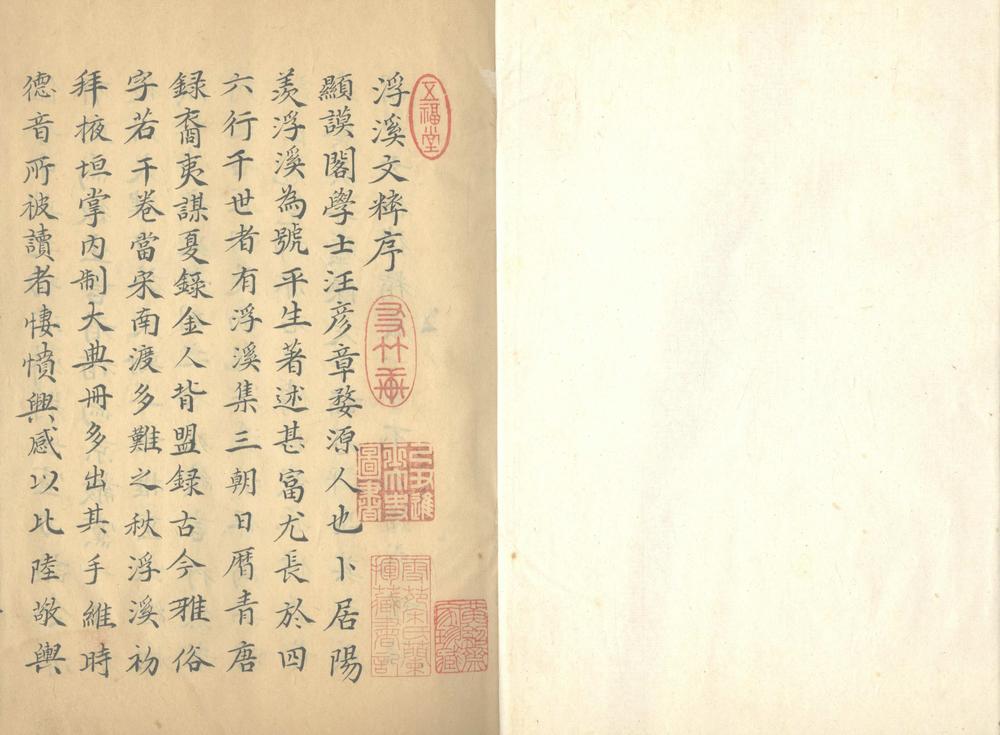 五福堂
浮溪文粹序
友竹軒
己丑進士太史圖書
雪苑宋氏蘭揮藏書記
顯謨閣學士汪彦章婺源人也卜居陽
羨浮溪為號平生著述甚富尤長於四
六行于世者有浮溪集三朝日曆青唐
録裔夷謀夏録金人背盟録古今雅俗
字若干卷當宋南渡多難之秋浮溪初
拜掖垣掌内制大典冊多出其手維時
德音所被讀者悽憤興感以比陸敬輿